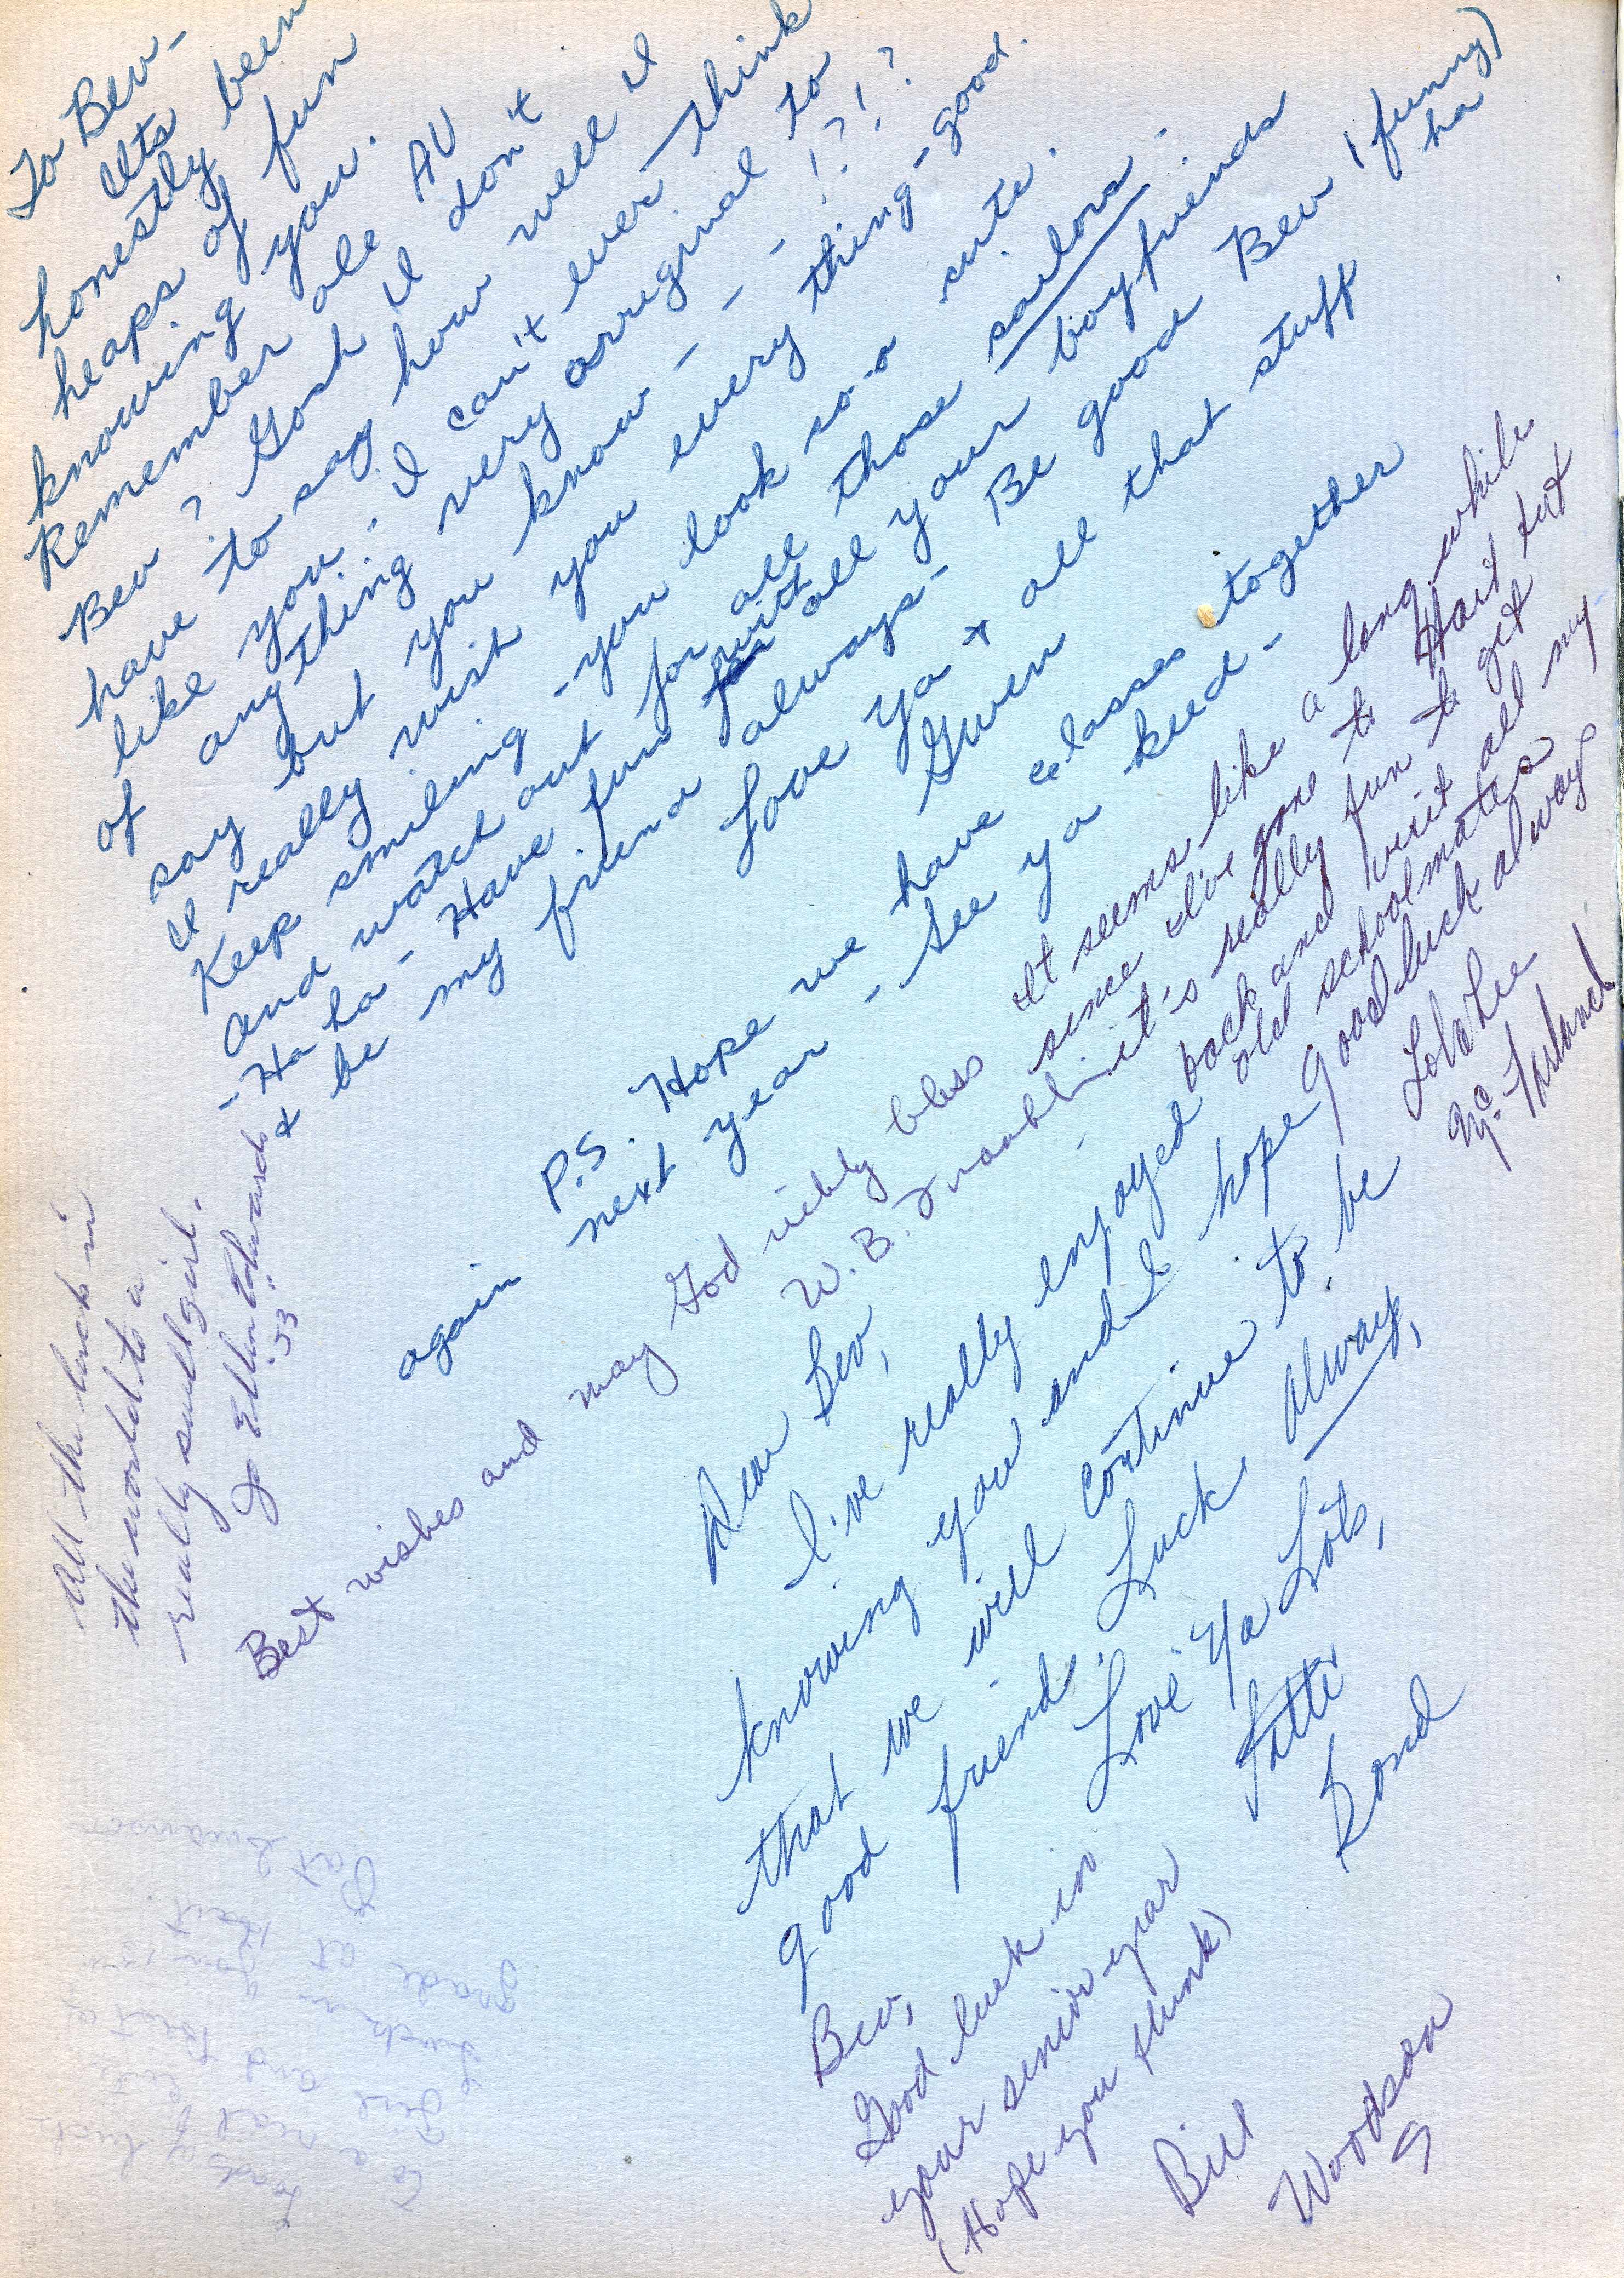 To Bev-
Its been
honestly
heaps of fun
knowing you.
Remember ole AV
Bev? Gosh I don't
have to say how well I
like you. I can't ever think
of anything very arreginal to
say but you know - - - - !?!?
I really wish you every thing-good.
Keep smiling - you look so-o cute.
And watch out for all those sailors.
- Ha ha - Have fun with all your boyfriends
& be my friend always- Be good Bev (funny)
ha
Love ya & all that stuff
Gwen
P.S. Hope we have classes together
again next year - See ya keed -
All the luck in
the world to a
really swell girl.
Jo Ellen Edwards
"53"
Best wishes and may God richly bless
W. B. Franklin
It seems like a long while
since I've gone to Hart but
it's really fun to get
back and visit all my
old schoolmates
Good luck always
Lola Lee
McFarland
Dear Bev,
I've really enjoyed
knowing you and I hope
that we will continue to be
good friends. Luck always,
Love Ya Lots,
Patti
Bond
Bev,
Good luck in
your senior year
(Hope you flunk)
Bill
Woodson
Loads of luck
to a real cute
Girl and Best of
luck in
grade at Hart
Pat